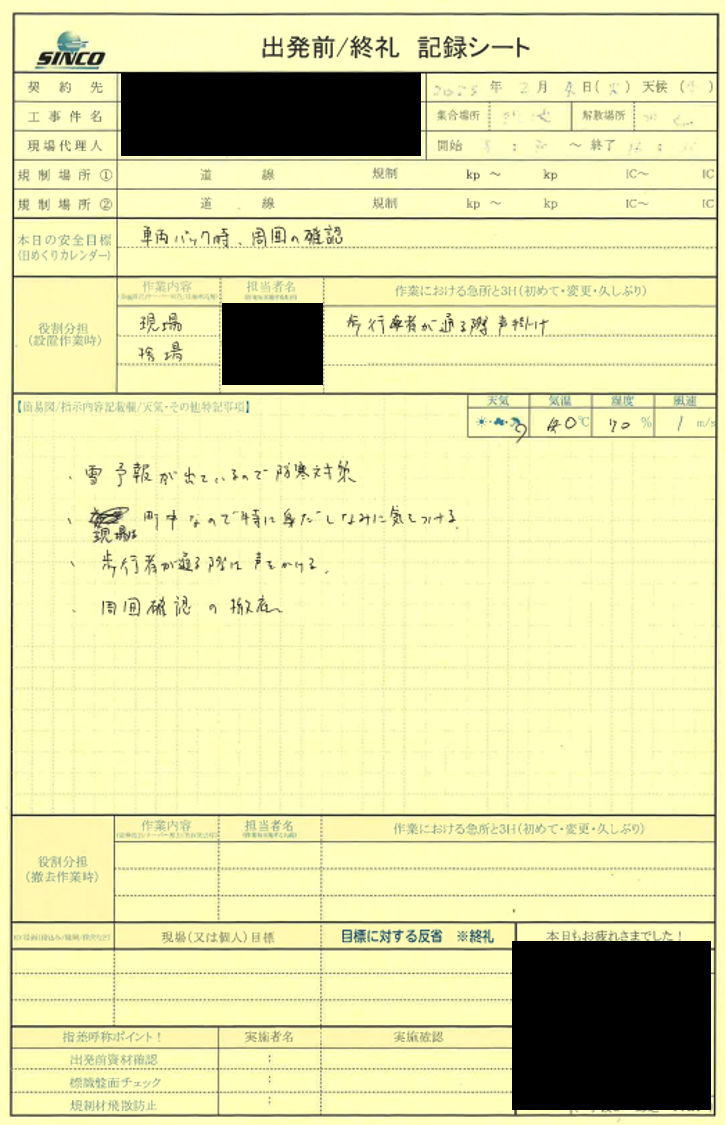 SINCO
出発前/終礼 記録シート
契約先
年 2月 日( ) 天候( )
工事件名
集合場所
解散場所
現場代理人
開始 : 30 ～ 終了 :
規制場所① 道 線 規制 kp ～ kp IC～ IC
規制場所② 道 線 規制 kp ～ kp IC～ IC
本日の安全目標
(日めくりカレンダー)
車両バック時、周囲の確認
役割分担
(設置作業時)
作業内容 担当者名 作業における急所と3H(初めて・変更・久しぶり)
現場 歩行者が通る際声掛け
【簡易図/指示内容記載欄/天気・その他特記事項】
天気 気温 湿度 風速
℃ 70% 1 m/s
・雪予報が出ているので防寒対策
・現場は町中なので特に身だしなみに気をつける。
・歩行者が通る際は声をかける。
・周囲確認の徹底
役割分担
(撤去作業時)
作業内容 担当者名 作業における急所と3H(初めて・変更・久しぶり)
現場(又は個人)目標 目標に対する反省 ※終礼 本日もお疲れさまでした！
指差呼称ポイント！ 実施者名 実施確認
出発前資材確認 :
標識盤面チェック :
規制材飛散防止 :